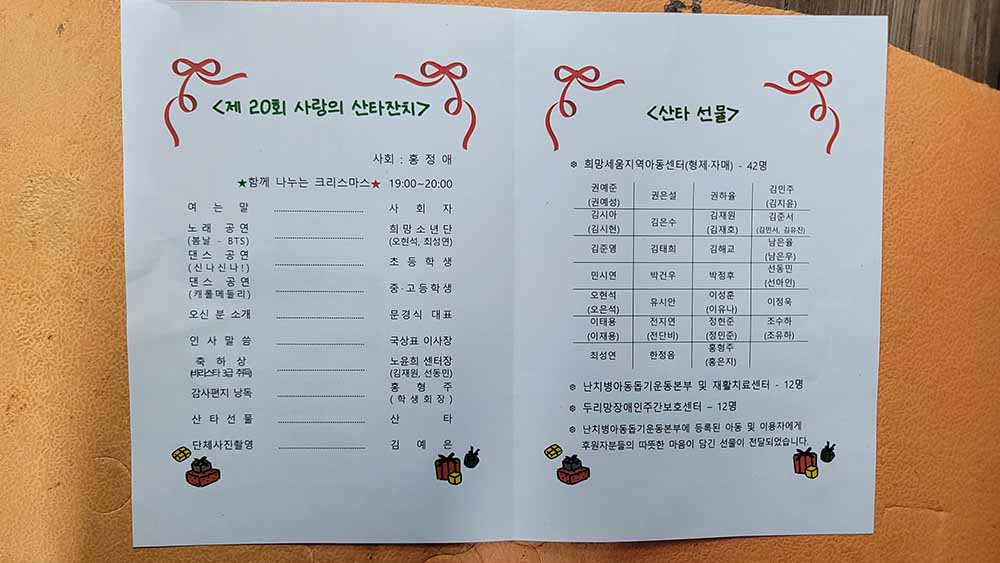 <제 20회 사랑의 산타잔치>
사회 : 홍 정 애
★함께 나누는 크리스마스★ 19:00~20:00
여 는 말 사 회 자
노래 공연 희망소년단
(봄날 - BTS) (오현석, 최성연)
댄스 공연 초등학생
(신나신나!)
댄스 공연 중·고등학생
(캐롤메들리)
오신 분 소개 문경식 대표
인사말씀 국상표 이사장
축하상 노윤희 센터장
(바리스타 3급 취득) (김재원, 선동민)
감사편지 낭독 홍 형 주
(학생회장)
산타선물 산 타
단체사진촬영 김 예 은
<산타 선물>
❆ 희망세움지역아동센터(형제·자매) - 42명
권예준 (권예성) 권은설 권하율 김민주 (김지윤)
김시아 (김시현) 김은수 김재원 (김재호) 김준서 (김민서, 김유진)
김준영 김태희 김해교 남은율 (남은우)
민시연 박건우 박정후 선동민 (선아인)
오현석 (오은석) 유시안 이성훈 (이유나) 이정욱
이태용 (이재용) 전지연 (전단비) 정현준 (정민준) 조수하 (조유하)
최성연 한정음 홍형주 (홍은지)
❆ 난치병아동돕기운동본부 및 재활치료센터 - 12명
❆ 두리망장애인주간보호센터 – 12명
❆ 난치병아동돕기운동본부에 등록된 아동 및 이용자에게
후원자분들의 따뜻한 마음이 담긴 선물이 전달되었습니다.